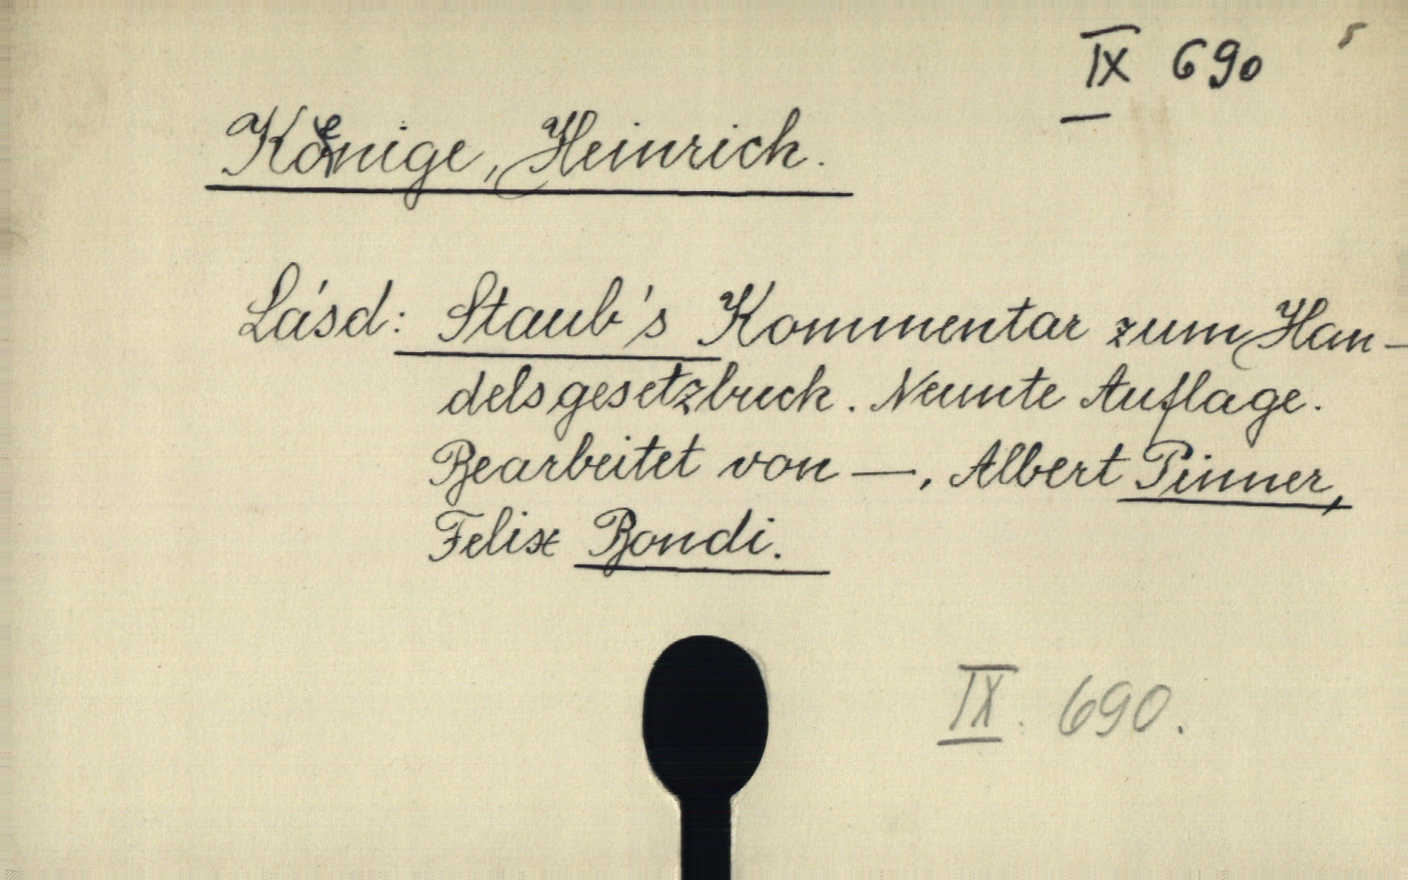 IX 690
Koenige, Heinrich.
Lásd: Staub's Kommentar zum Han-
delsgesetzbuch. Neunte Auflage.
Bearbeitet von —, Albert Pinner,
Felix Bondi.
IX. 690.